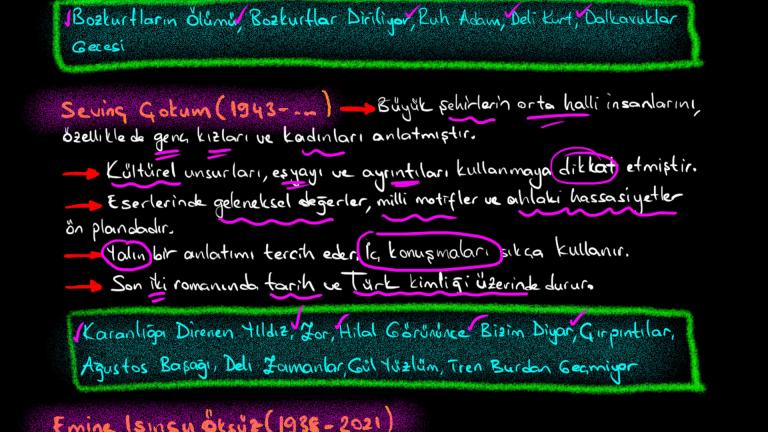 Bozkurtların Ölümü, Bozkurtlar Diriliyor, Ruh Adam, Deli Kurt, Dalkavuklar
Gecesi
Sevinç Çokum (1943-...) → Büyük şehirlerin orta halli insanlarını,
özellikle de genç kızları ve kadınları anlatmıştır.
→ Kültürel unsurları, eşyayı ve ayrıntıları kullanmaya dikkat etmiştir.
→ Eserlerinde geleneksel değerler, milli motifler ve ahlaki hassasiyetler
ön plandadır.
→ Yalın bir anlatımı tercih eder. İç konuşmaları sıkça kullanır.
→ Son iki romanında tarih ve Türk kimliği üzerinde durur.
Karanlığa Direnen Yıldız, Zor, Hilal Görününce, Bizim Diyar, Çırpıntılar,
Ağustos Başağı, Deli Zamanlar, Gül Yüzlüm, Tren Burdan Geçmiyor
Emine Işınsu Öksüz (1938-2021)